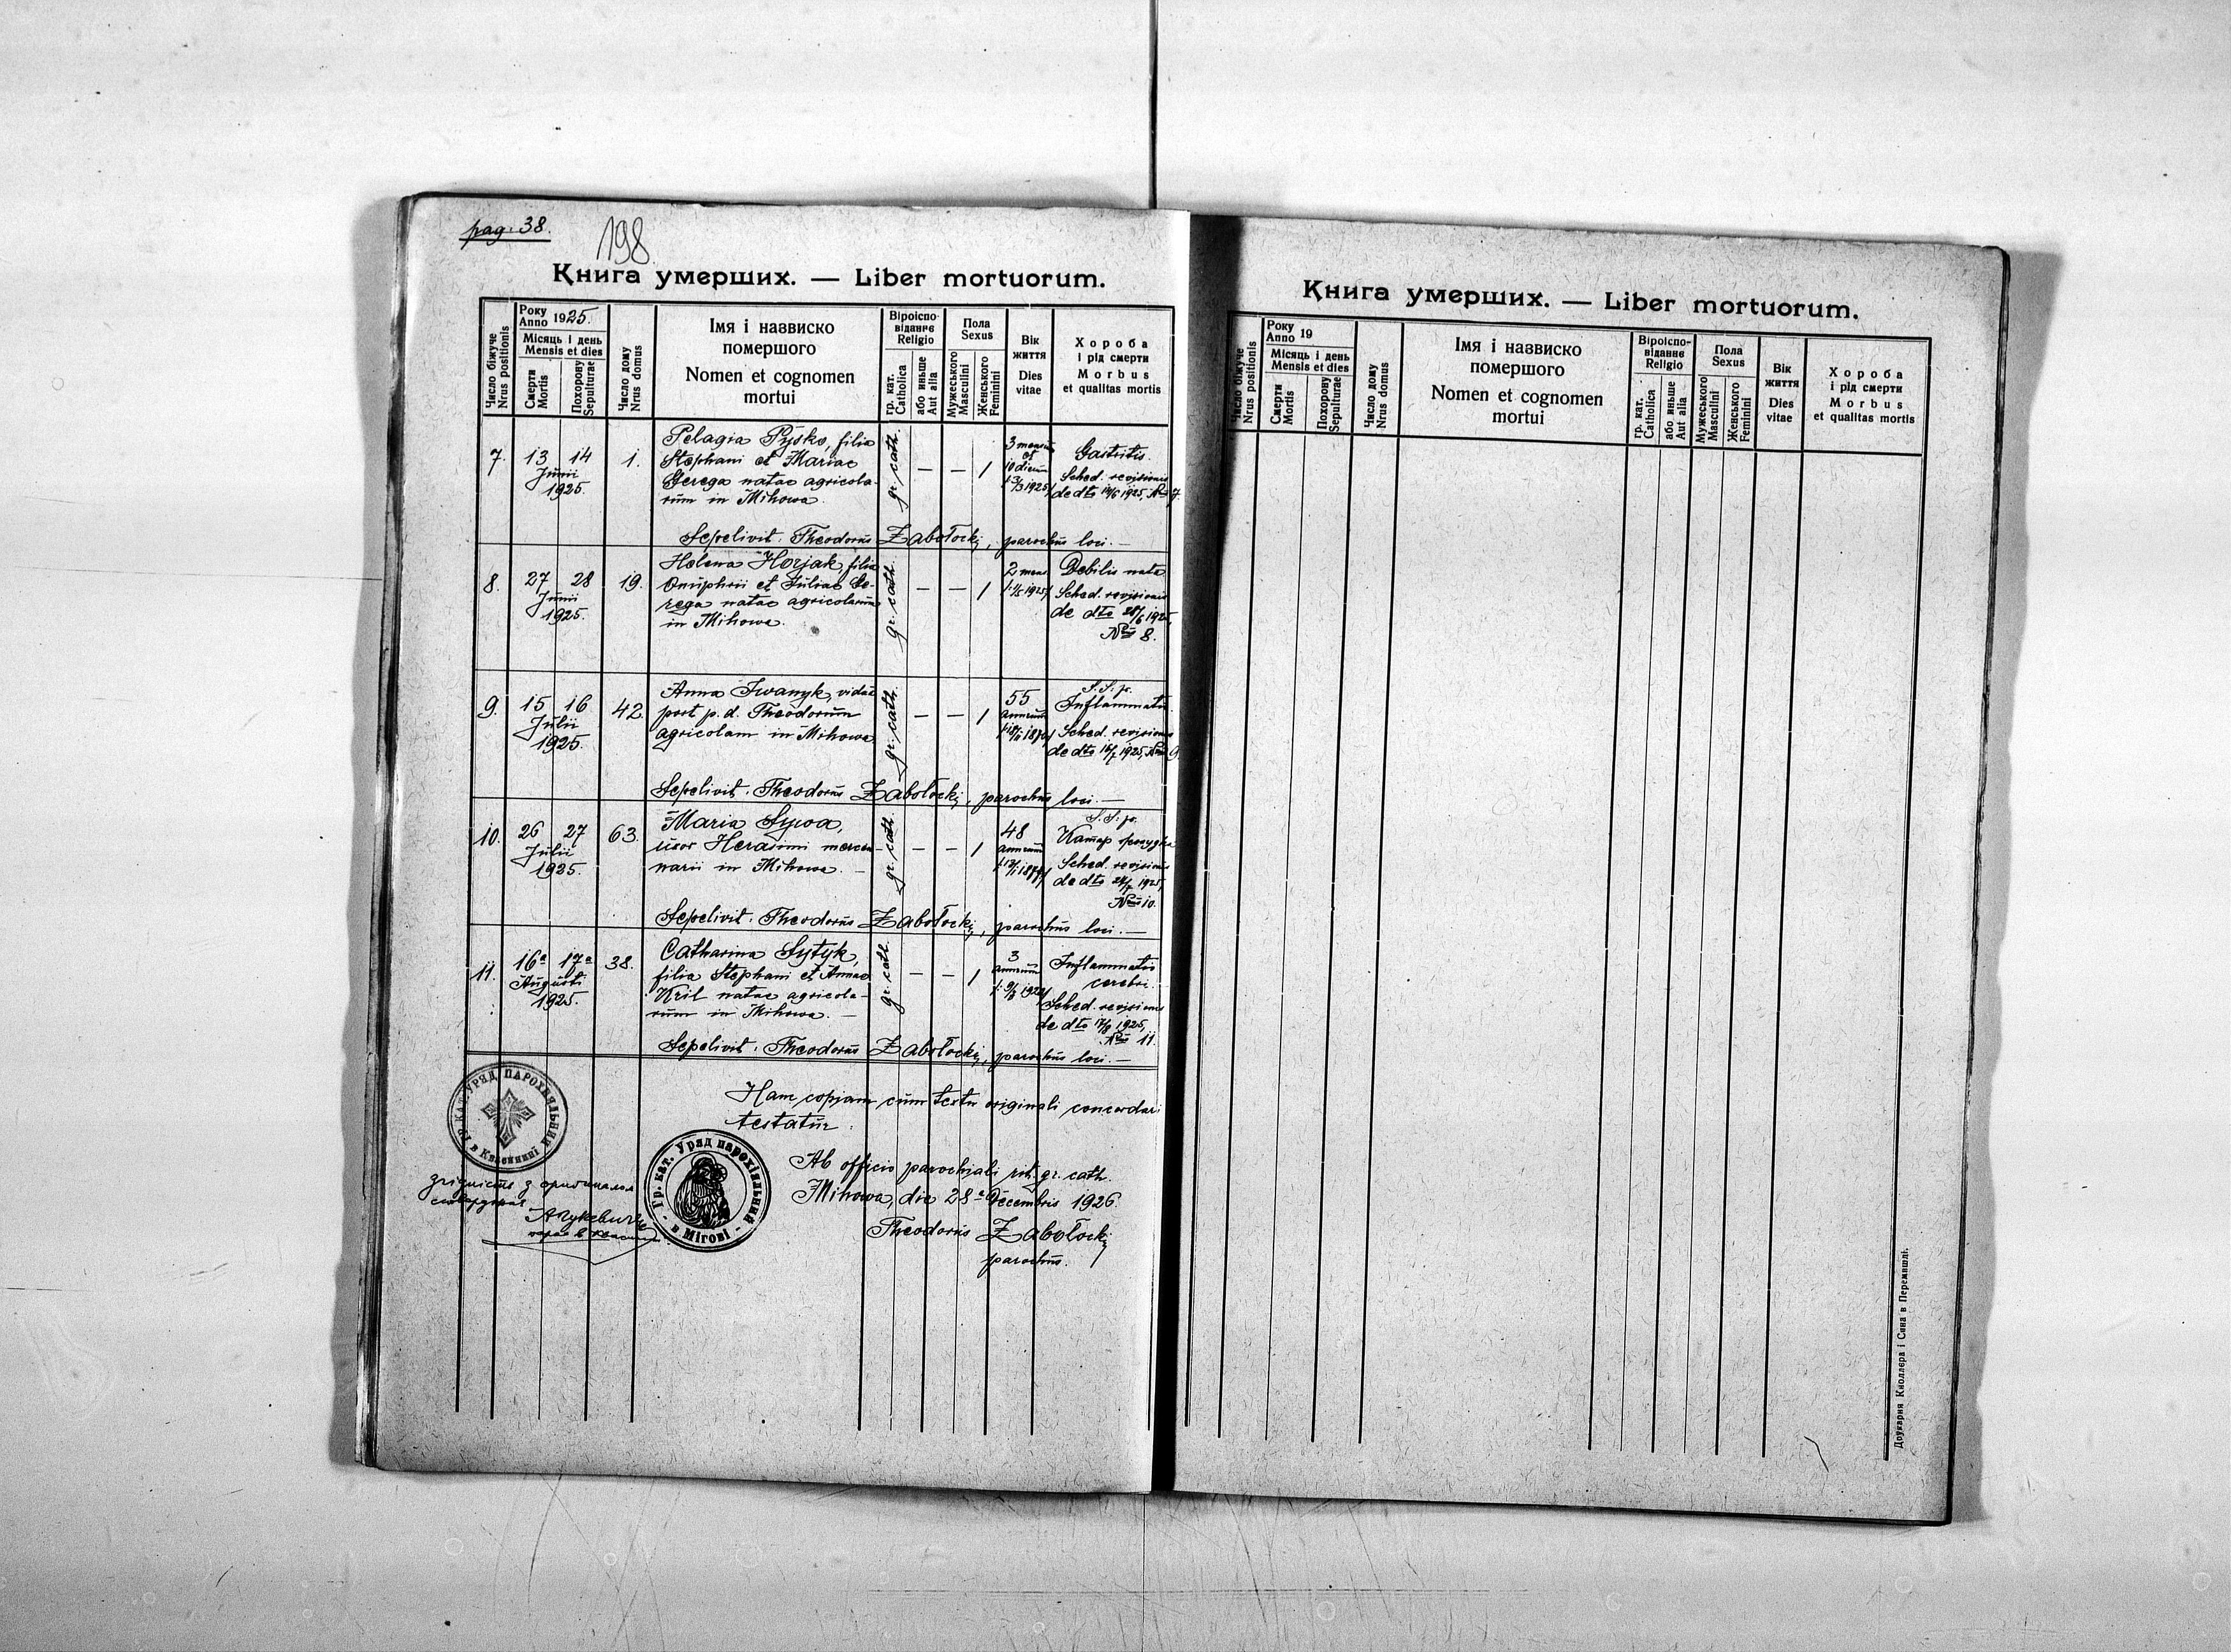 pag. 38.
198.
Книга умерших. — Liber mortuorum.
Число біжуче
Nrus positionis
Року
Anno 1925.
Місяць і день
Mensis et dies
Смерти
Mortis
Похорону
Sepulturae
Число дому
Nrus domus
Імя і назвиско
помершого
Nomen et cognomen
mortui
Віроіспо-
віданнє
Religio
гр. кат.
Catholica
або иньше
Aut alia
Пола
Sexus
Мужеського
Masculini
Женського
Feminini
Вік
життя
Dies
vitae
Хороба
і рід смерти
Morbus
et qualitas mortis
7. 13 14 Junii 1925. 1.
Pelagia Pysko, filia
Stephani et Mariae
Gerega natae agricola-
rum in Mihowa.
gr. cath. — — 1
3 mensium et 10 dierum
Gastritis.
Sched. revisionis
de dto 14/6 1925, Nro 7.
Sepelivit: Theodorus Zabołockij, parochus loci. —
8. 27 28 Junii 1925. 19.
Helena Horjak, filia
Onuphrii et Juliae Ge-
rega natae agricolarum
in Mihowa.
gr. cath. — — 1
2 mens
Debilis nata
Sched. revisionis
de dto 28/6 1925,
Nro 8.
9. 15 16 Julii 1925. 42.
Anna Iwanyk, vidua
post p. d. Theodorum
agricolam in Mihowa
gr. cath. — — 1
55 annorum
S. S. p.
Sched. revisionis
de dto 16/7 1925, Nro 9.
Sepelivit: Theodorus Zabołockij, parochus loci. —
10. 26 27 Julii 1925. 63.
Maria Sywa,
uxor Herasimi merce-
narii in Mihowa. —
gr. cath. — — 1
48 annorum
S. S. p.
Катар
Sched. revisionis
Nro 10.
Sepelivit: Theodorus Zabołockij, parochus loci. —
11. 16a 17a Augusti 1925. 38.
Catharina Sytyk,
filia Stephani et Annae
Kril natae agricola-
rum in Mihowa. —
gr. cath. — — 1
3 annorum
Inflammatio
cerebri.
Sched. revisionis
de dto 17/8 1925,
Nro 11.
Sepelivit: Theodorus Zabołockij, parochus loci. —
Hanc copiam cum textu originali concordari
testatur.
Ab officio parochiali rit. gr. cath.
Mihowa, die 28a Decembris 1926.
Theodorus Zabołockij
parochus.
Гр. кат. Уряд парохіяльний в Мігові
згідність з оригіналом
Книга умерших. — Liber mortuorum.
Число біжуче
Nrus positionis
Року
Anno 19
Місяць і день
Mensis et dies
Смерти
Mortis
Похорону
Sepulturae
Число дому
Nrus domus
Імя і назвиско
помершого
Nomen et cognomen
mortui
Віроіспо-
віданнє
Religio
гр. кат.
Catholica
або иньше
Aut alia
Пола
Sexus
Мужеського
Masculini
Женського
Feminini
Вік
життя
Dies
vitae
Хороба
і рід смерти
Morbus
et qualitas mortis
Друкарня Кноллера і Сина в Перемишлі.